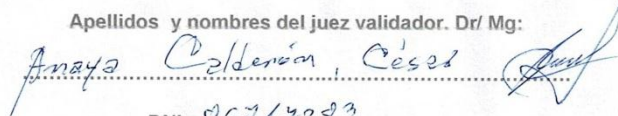 Apellidos y nombres del juez validador. Dr/ Mg:
Anaya Calderón, César